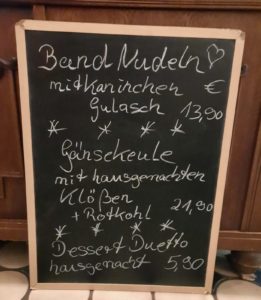 Band Nudeln ♡
mit Kaninchen €
Gulasch 13,90
* * * *
Gänsekeule
mit hausgemachten
Klößen
+ Rotkohl 21,90
* * * *
Dessert Duetto
hausgemacht 5,90